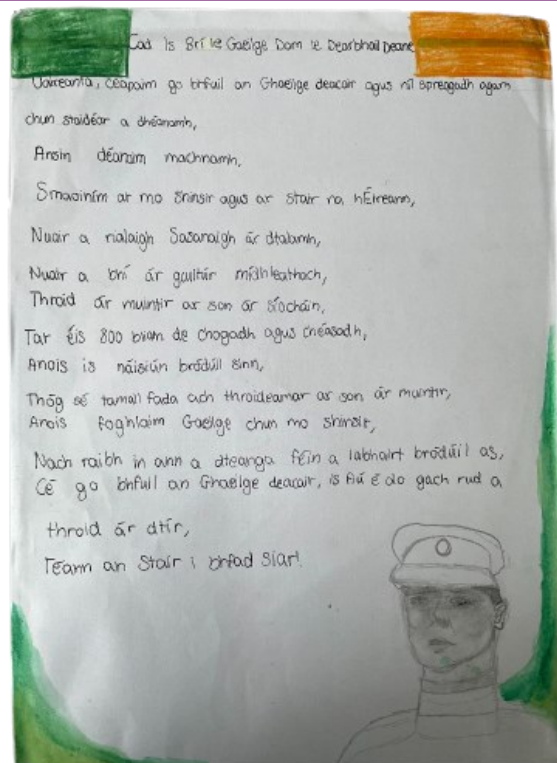 Cad Is Brí le Gaeilge Dom le Dearbhail Deane
Uaireanta, ceapaim go bhfuil an Ghaeilge deacair agus níl spreagadh agam
chun staidéar a dhéanamh,
Ansin déanaim machnamh,
Smaoiním ar mo shinsir agus ar stair na hÉireann,
Nuair a rialaigh Sasanaigh ár dtalamh,
Nuair a bhí ár gcultúr mídhleathach,
Throid ár muintir ar son ár síocháin,
Tar éis 800 bliain de chogadh agus chéasadh,
Anois is náisiún bródúil sinn,
Thóg sé tamall fada ach throideamar ar son ár muintir,
Anois foghlaim Gaeilge chun mo shinsir,
Nach raibh in ann a dteanga féin a labhairt bródúil as,
Cé go bhfuil an Ghaeilge deacair, is fiú é do gach rud a
throid ár dtír,
Téann an Stair i bhfad siar!